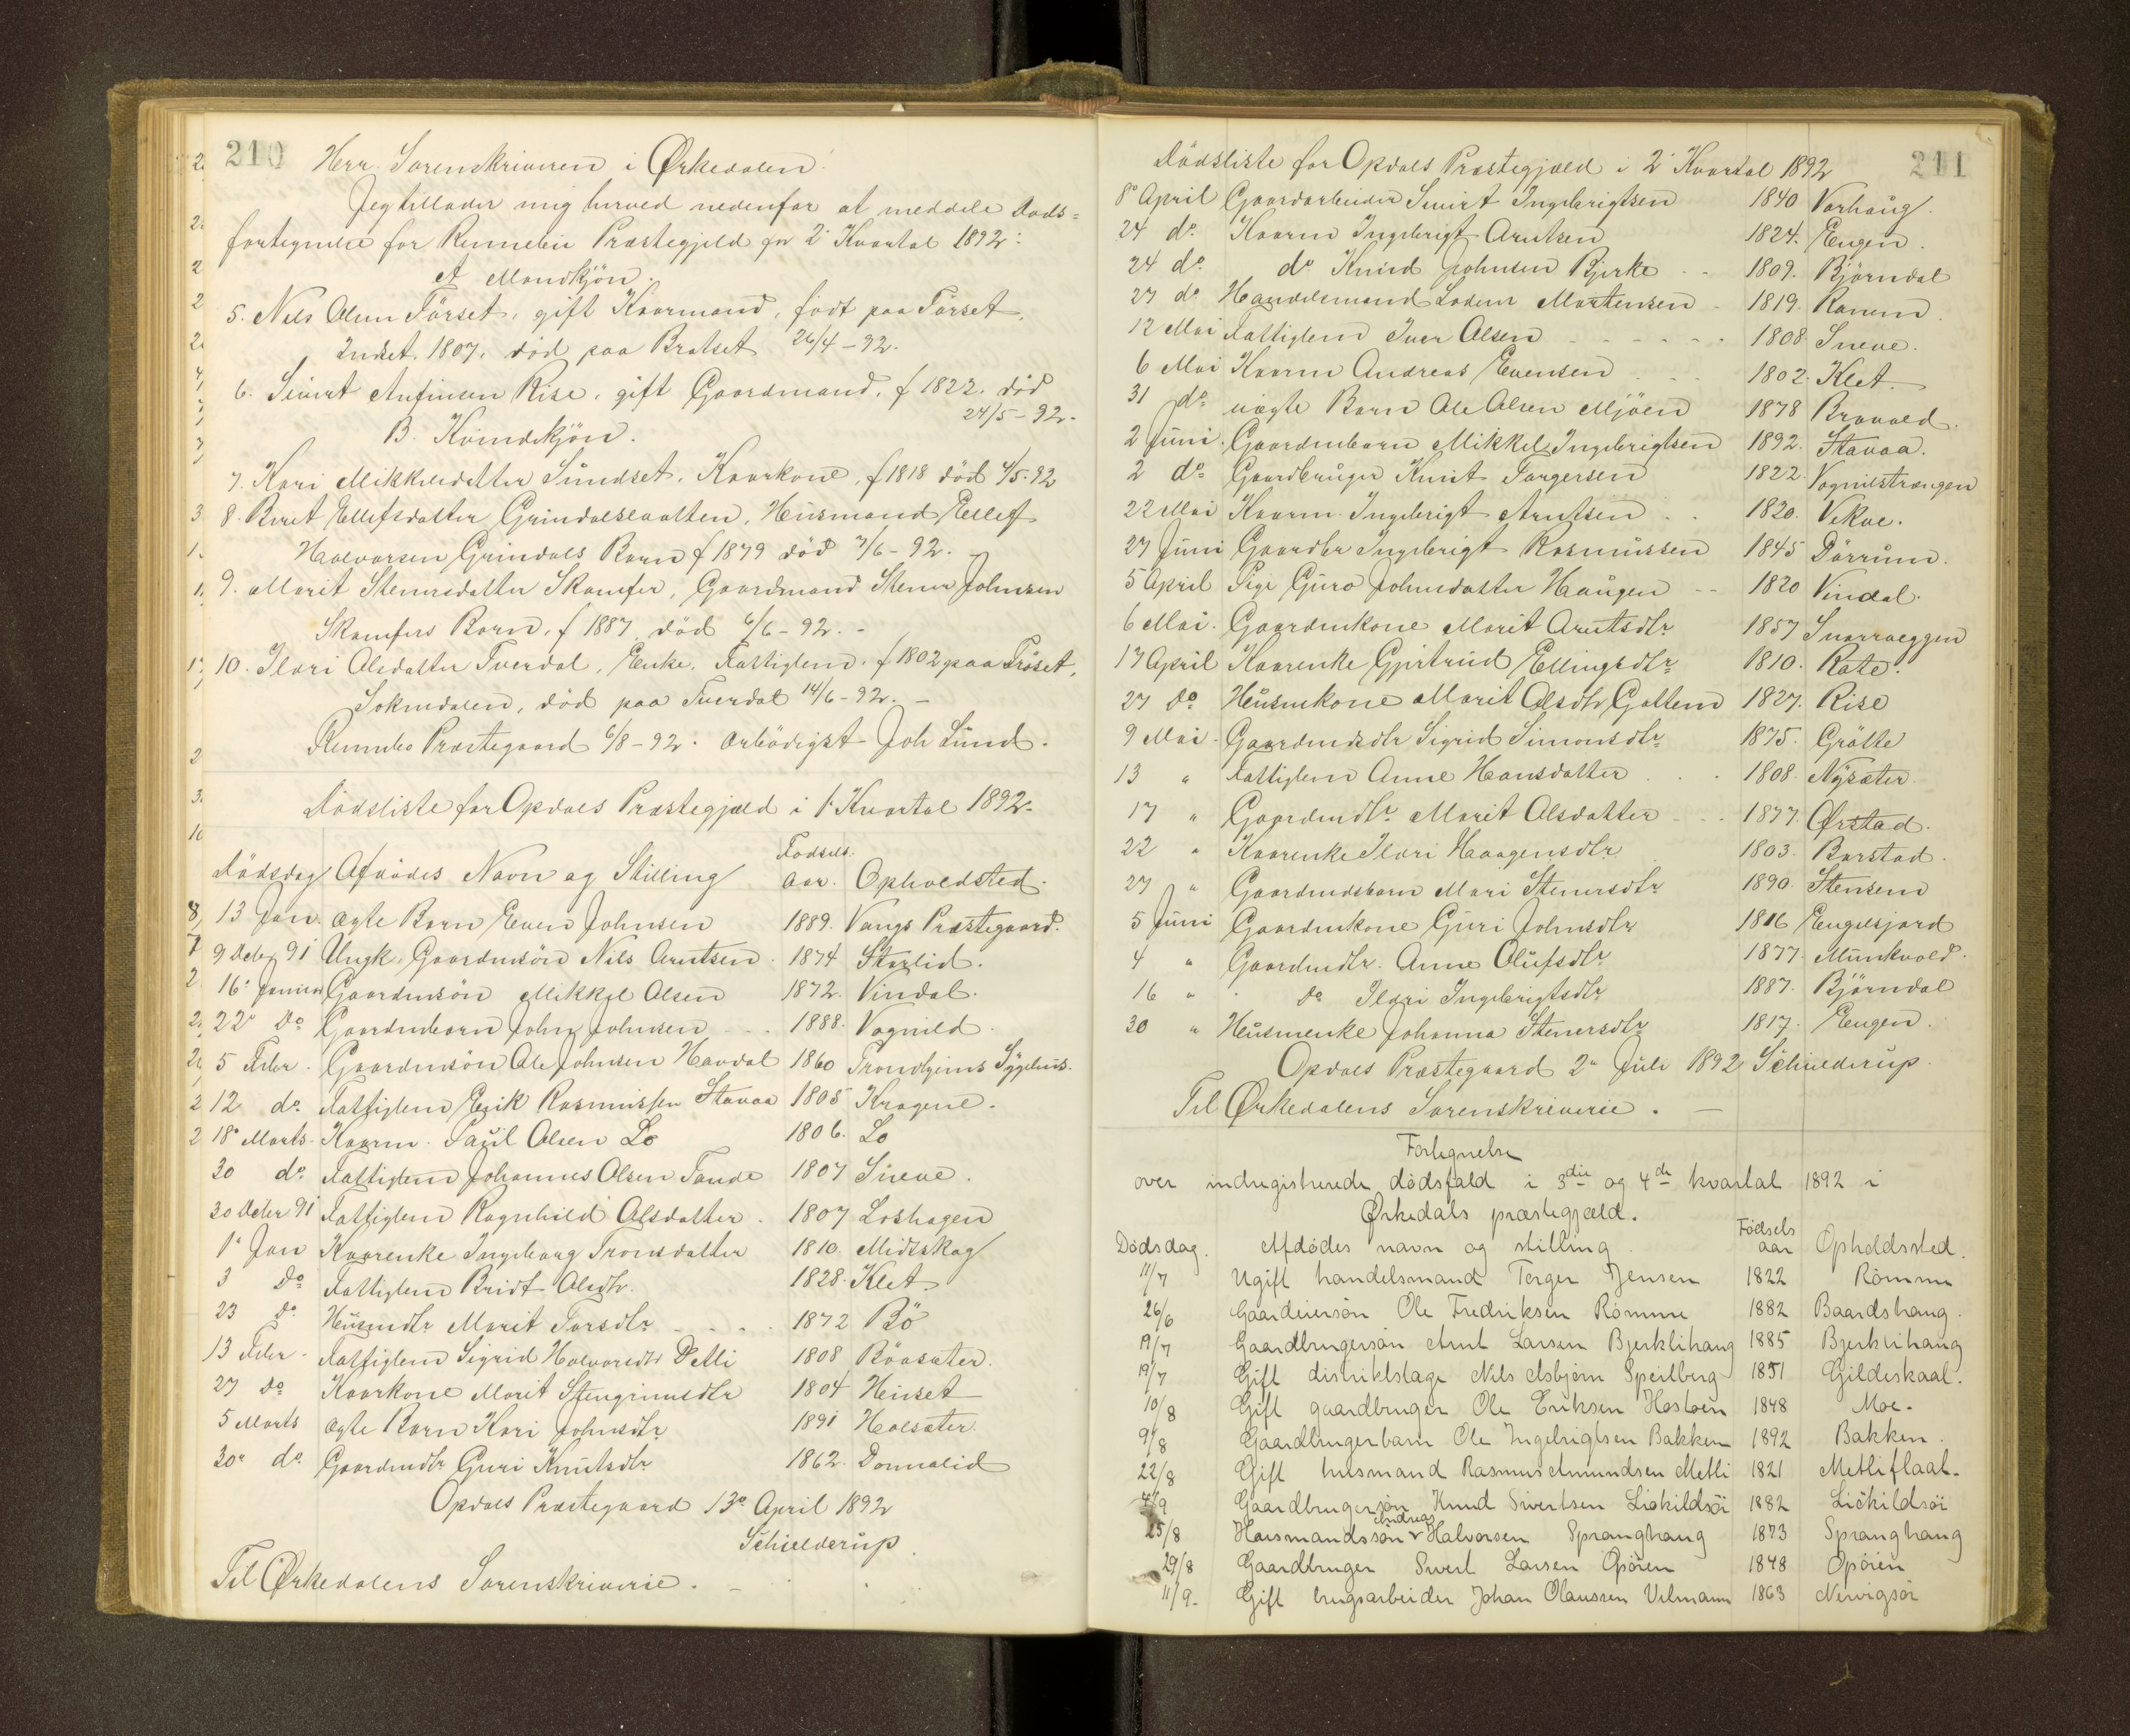 210
Herr Sorenskriveren i Ørkedalen
Jeg tillader mig herved nedenfor at meddele Døds=
fortegnelse for Rennebu Præstegjeld for 2' Kvartal 1892:
A Mandkjön.
5. Nils Olsen Förset, gift Kaarmand, födt paa Förset,
Indset. 1807. död paa Bratset 26/4-92.
6. Sivert Anfinsen Rise, gift Gaardmand, f 1822. död
24/5-92.
B. Kvindekjön.
7. Kari Mikkelsdatter Sundset, Kaarkone, f 1818 död 4/5-92
8. Beret Ellefsdatter Grindalslaatten, Husmand Ellef
Halvorsen Grindals Barn f 1879 död 7/6-92.
9. Marit Stenersdatter Skamfer, Gaardmand Stener Johnsen
Skamfers Barn, f 1887 död 6/6-92.-
10. Ildri Olsdatter Tverdal, Enke, Fattiglem. f 1802 paa Fröset,
Soknedalen, död paa Tverdal 14/6-92.-
Rennebo Præstegaard 6/8-92. Ærbödigst Joh Lund.
Dödsliste for Opdals Præstegjæld i 1' Kvartal 1892.
Dödsdag Afdödes Navn og Stilling Fødsels Aar. Opholdsted.
13 Jan. ægte Barn Even Johnsen 1889. Vangs Præstegaard.
9 Debr 91 Ungk. Gaardmsön Nils Arntsen 1874 Storlid.
16' Januar Gaardmsön Mikkel Olsen 1872. Vindal.
22' Do Gaardmbarn John Johnsen 1888. Vognild.
5 Febr. Gaardmsön Ole Johnsen Havdal 1860 Trondhjems Sygehus.
12 do. Fattiglem Erik Rasmussen Stavaa 1805 Kragene.
18' Marts. Kaarm. Paul Olsen Lo 1806. Lo
30 do. Fattiglem Johannes Olsen Tande 1807 Sneve.
30 Debr 91 Fattiglem Ragnhild Olsdatter 1807 Loshagen
1' Jan Kaarenke Ingeborg Tronsdatter 1810. Midtskog
3 Do Fattiglem Bridt Olsdtr. 1828. Klet
23 Do Husmdtr Marit Torsdtr 1872 Bö
13 Febr. Fattiglem Sigrid Halvorsdtr Detli 1808 Böasæter.
27 Do Kaarkone Marit Stengrimsdtr 1804 Heuset
5 Marts ægte Barn Kari Johnsdtr 1891 Holsæter.
30' do. Gaardmdtr Guri Knutsdtr 1862. Donnalid
Opdals Præstegaard 13' April 1892
Schielderup
Til Ørkedalens Sorenskriverie.
211
Dödsliste for Opdals Præstegjæld i 2' Kvartal 1892
8' April Gaardarbeider Sivert Ingebrigtsen 1840 Vorhaug.
24 do. Kaarm Ingebrigt Arntsen 1824. Engen.
24 do. do Knud Johnsen Bjerke 1809. Björndal
27 do Handelsmand Lodver Mortensen 1819. Ranem
12 Mai Fattiglem Iver Olsen 1808. Sneve.
6 Mai Kaarm Andreas Evensen 1802. Klet.
31 do. uægte Barn Ole Olsen Mjöen 1878 Bravold.
2 Juni. Gaardmbarn Mikkel Ingebrigtsen 1892. Stavaa.
2 do Gaardbruger Knut Torgersen 1822. Vognilstrængen
22 Mai Kaarm Ingebrigt Arntsen 1820. Vekve.
27 Juni Gaardbr Ingebrigt Rasmussen 1845 Dörrum.
5 April Pige Guro Johnsdatter Haugen 1820 Vindal.
6 Mai. Gaardmkone Marit Arntsdtr 1857 Snarræggen
17 April Kaarenke Gjertrud Ellingsdtr 1810. Rate.
27 Do Husmkone Marit Olsdtr Gottem 1827. Rise
9 Mai. Gaardmdtr Sigrid Simonsdtr 1875. Grötte
13 " Fattiglem Anne Hansdatter 1808. Nysæter.
17 " Gaardmdtr Marit Olsdatter 1877. Ørstad.
22 " Kaarenke Ildri Haagensdtr 1803. Barstad.
27 " Gaardmdsbarn Mari Stenersdtr 1890. Stensem
5 Juni Gaardmkone Guri Johnsdtr 1816 Engelsjord
4 " Gaardmdtr. Anne Olufsdtr 1877. Munkvold.
16 " Do Ildri Ingebrigtsdtr 1887. Björndal
30 " Husmenke Johanna Stenersdtr 1817. Engen.
Opdals Præstegaard 2' Juli 1892 Schielderup.
Til Ørkedalens Sorenskriverie.
Fortegnelse
over indregistrerede dödsfald i 3die og 4de kvartal 1892 i
Ørkedals præstegjæld.
Dödsdag. Afdödes navn og stilling. Födsels aar Opholdssted.
11/7 Ugift handelsmand Terger Jensen 1822 Römme
26/6 Gaardeiersön Ole Fredriksen Römme 1882 Baardshaug.
19/7 Gaardbrugersön Arnt Larsen Bjerklihaug 1885 Bjerklihaug
19/7 Gift distriktslæge Nils Asbjörn Speilberg 1851 Gildeskaal.
10/8 Gift gaardbruger Ole Eriksen Hostoen 1848 Moe.
9/8 Gaardbrugerbarn Ole Ingebrigtsen Bakken 1892 Bakken.
22/8 Gift husmand Rasmus Amundsen Metli 1821 Metliflaat.
4/9 Gaardbrugersön Knud Sivertsen Liökildsöi 1882 Liökildsöi
25/8 Husmandssön Andreas Halvorsen Spranghaug 1873 Spranghaug
29/8 Gaardbruger Sivert Larsen Opöien 1848 Opöien
11/9. Gift brugsarbeider Johan Olaussen Velmann 1863 Nervigsör